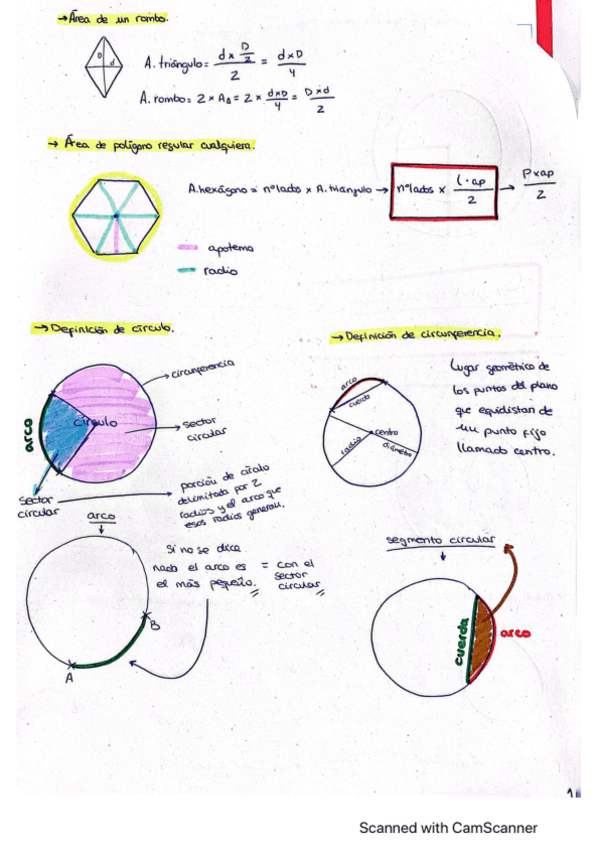 → Área de un rombo.
D
d
A. triángulo = d x D/2 / 2 = d x D / 4
A. rombo = 2 x A△ = 2 x d x D / 4 = D x d / 2
→ Área de polígono regular cualquiera.
A. hexágono = nº lados x A. triángulo → nº lados x l · ap / 2 → P x ap / 2
apotema
radio
→ Definición de círculo.
circunferencia
círculo
arco
sector
circular
sector
circular
porción de círculo
delimitada por 2
radios y el arco que
esos radios generan.
→ Definición de circunferencia.
arco
cuerda
centro
radio
diámetro
Lugar geométrico de
los puntos del plano
que equidistan de
un punto fijo
llamado centro.
arco
↓
A
B
si no se dice
nada el arco es
el más pequeño.
= con el
sector
circular
segmento circular
↓
cuerda
arco
1
Scanned with CamScanner